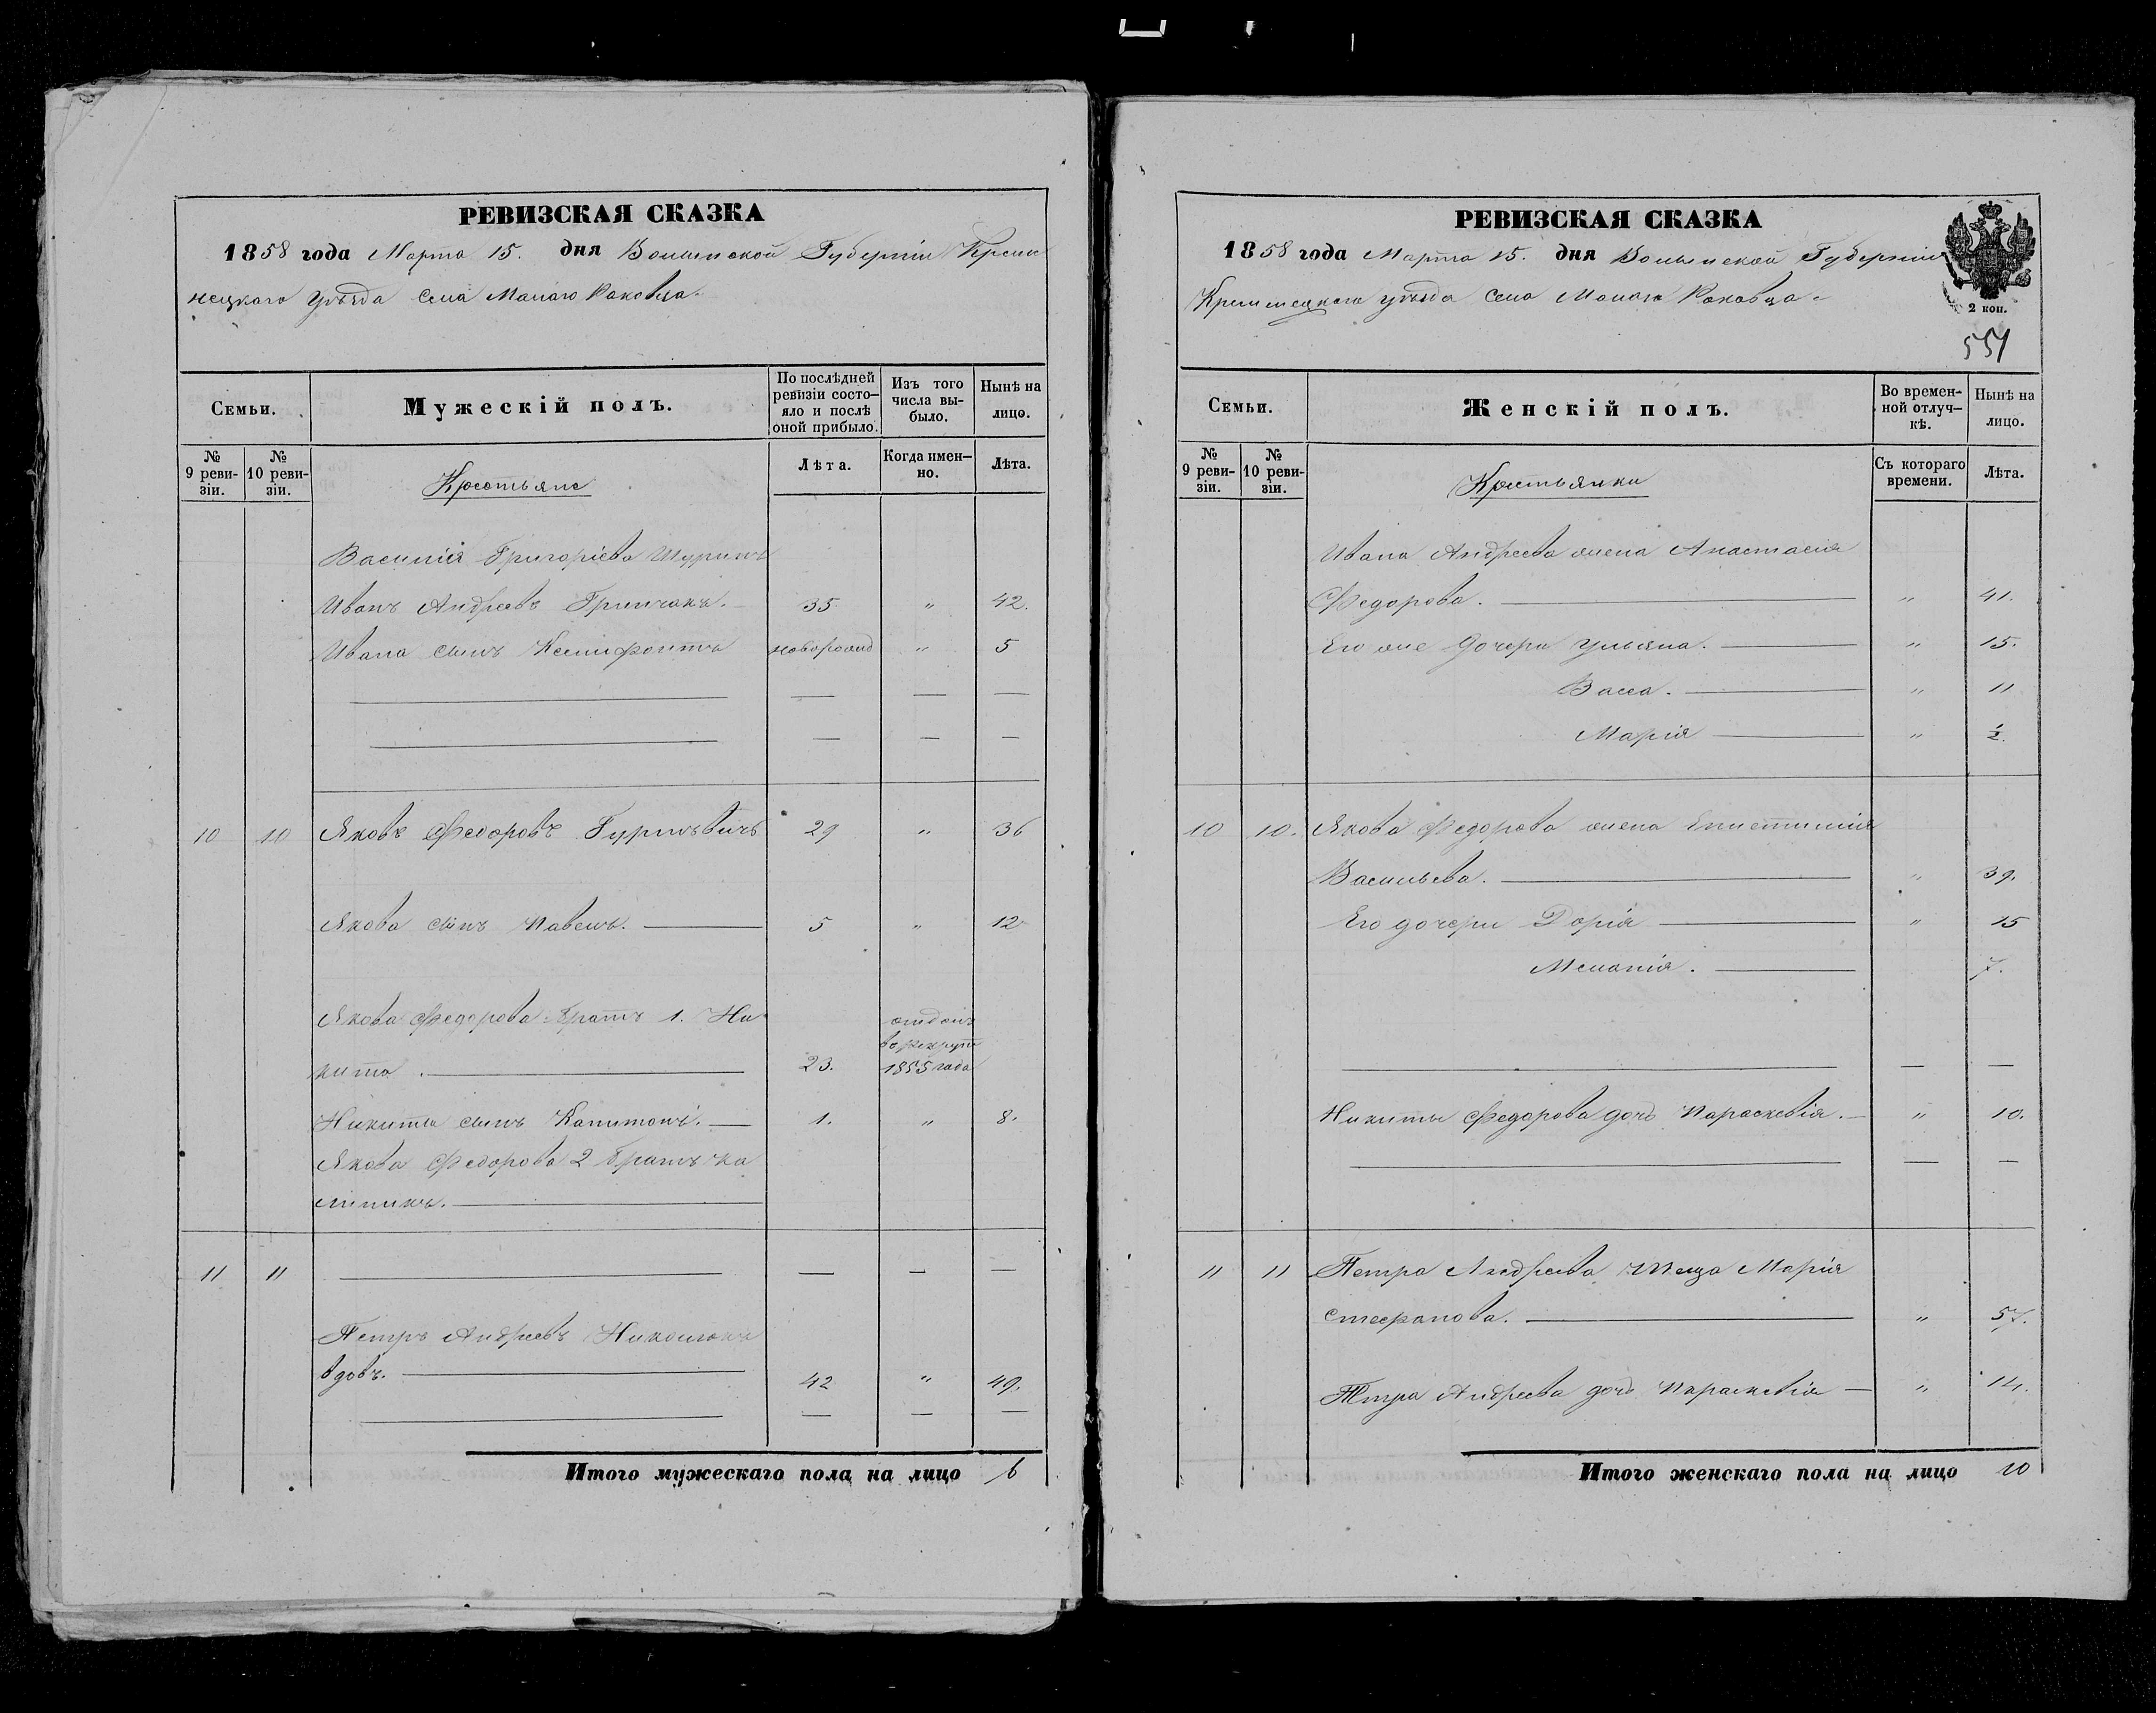 РЕВИЗСКАЯ СКАЗКА
1858 года Марта 15. дня Волынской Губерніи Креме
нецкаго уѣзда села Малаго Раковца.
Семьи.
Мужескій полъ.
По послѣдней ревизіи состо-яло и послѣ оной прибыло.
Изъ того числа вы-было.
Нынѣ на лицо.
№ 9 реви-зіи.
№ 10 реви-зіи.
Крестьяне
Лѣта.
Когда имен-но.
Лѣта.
Василія Григоріева Шуринъ
Иванъ Андреевъ Гринчакъ. 35 " 42.
Ивана сынъ Ксенифонтъ новорожд " 5
10 10 Яковъ Федоровъ Гурневичъ 29 " 36
Якова сынъ Павелъ. 5 " 12
Якова Федорова братъ 1. Ни
кита. 23. отданъ в рекрут 1855 года
Никиты сынъ Капитонъ. 1. " 8.
Якова Федорова 2 братъ Ка
линикъ.
11 11
Петръ Андреевъ Николюкъ
вдовъ. 42 " 49.
Итого мужескаго пола на лицо 6
РЕВИЗСКАЯ СКАЗКА
1858 года Марта 15. дня Волынской Губерніи
Кременецкаго уѣзда села Малаго Раковца.
2 коп.
551
Семьи.
Женскій полъ.
Во времен-ной отлуч-кѣ.
Нынѣ на лицо.
№ 9 реви-зіи.
№ 10 реви-зіи.
Крестьянки
Съ котораго времени.
Лѣта.
Ивана Андреева жена Анастасія
Федорова. " 41.
Его же дочери Ульяна. " 15.
Васса. " 11
Марія " ½.
10 10. Якова Федорова жена Епистимія
Васильева. " 39.
Его дочери Дорія " 15
Меланія. 7.
Никиты Федорова дочь Параскевія. " 10.
11 11 Петра Андреева теща Марія
Стефанова. " 57.
Петра Андреева дочь Параскевія " 14.
Итого женскаго пола на лицо 10